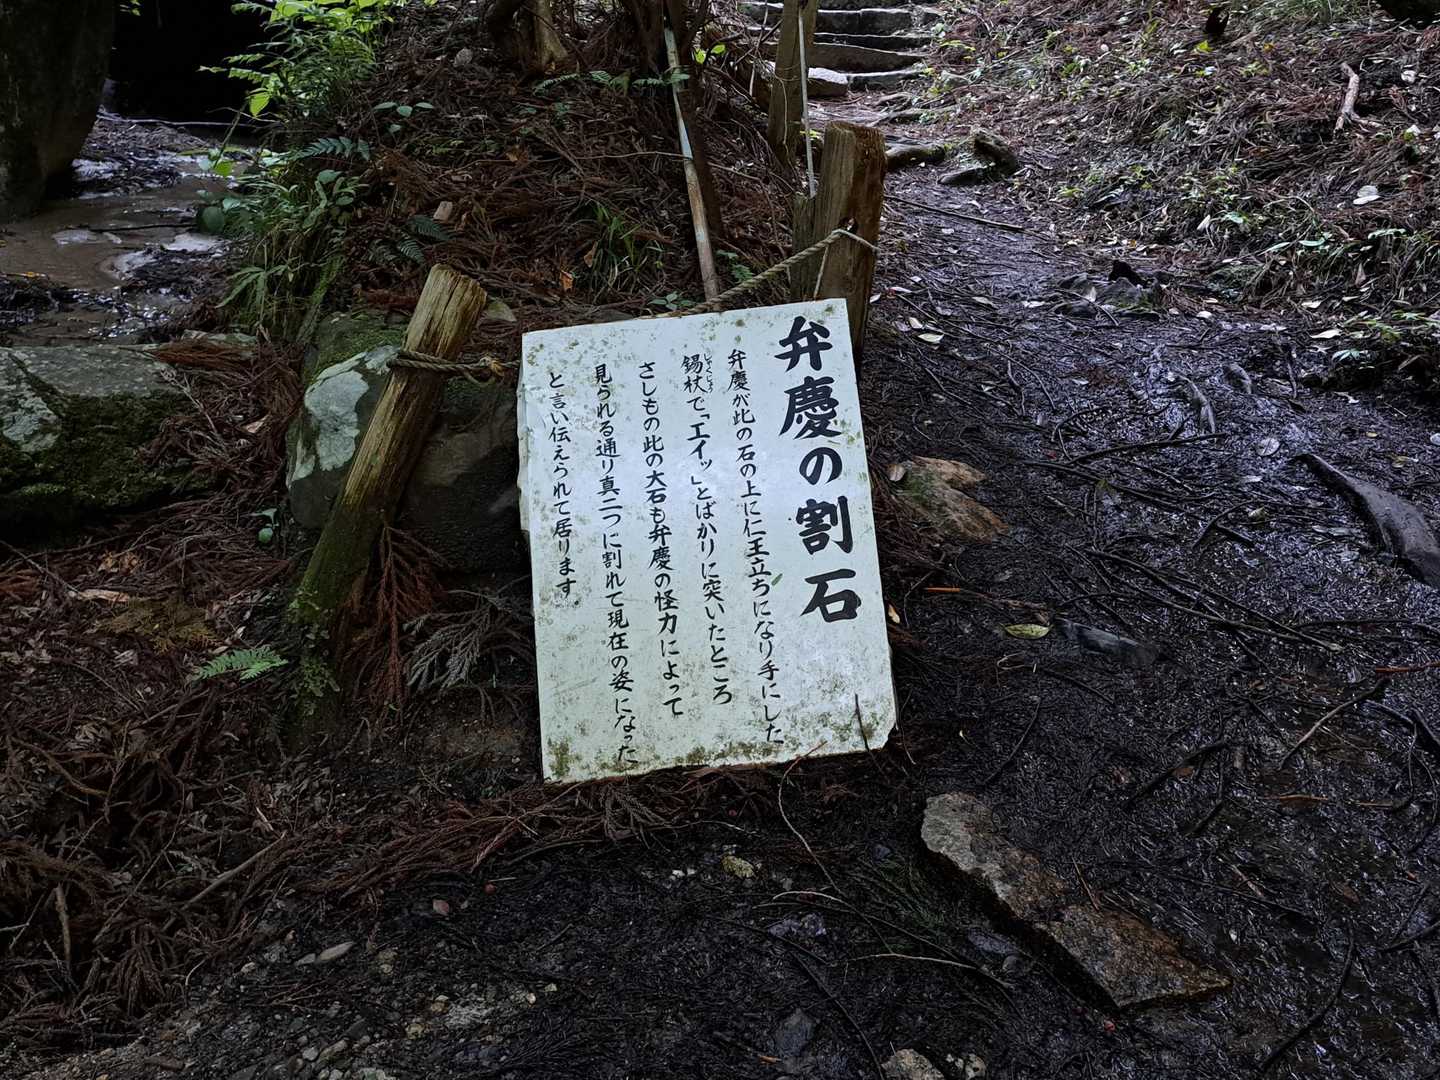 弁慶の割石
弁慶が此の石の上に仁王立ちになり手にした
錫杖で「エイッ」とばかりに突いたところ
しゃくじょう
さしもの此の大石も弁慶の怪力によって
見られる通り真二つに割れて現在の姿になった
と言い伝えられて居ります